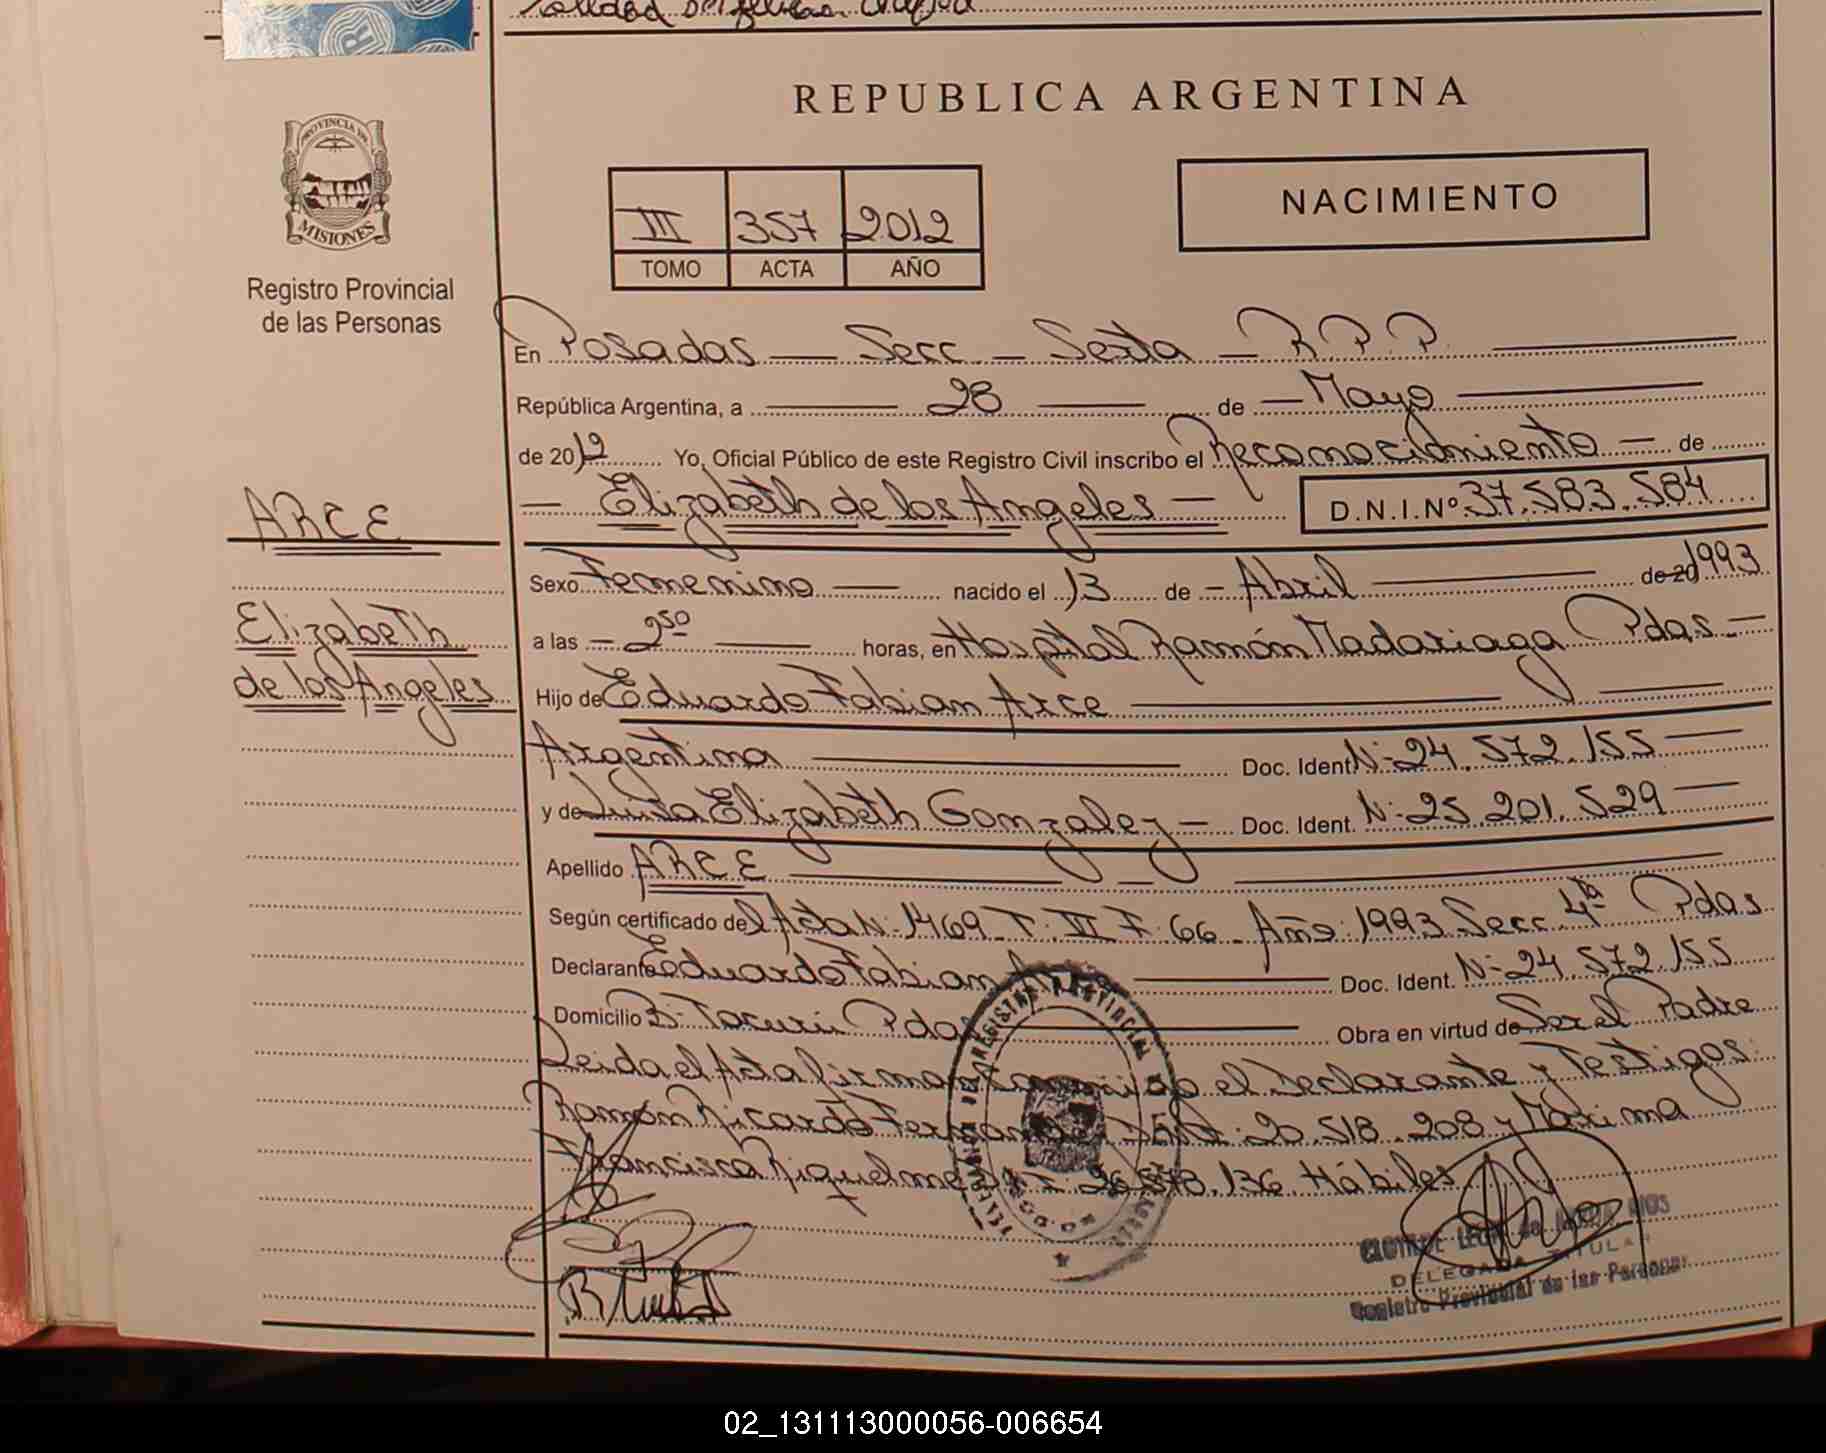 Calidad
REPUBLICA ARGENTINA
PROVINCIA DE
MISIONES
Registro Provincial
de las Personas
III 357 2012
TOMO ACTA AÑO
NACIMIENTO
En Posadas — Secc — Sexta — R.P.P.
República Argentina, a 28 de Mayo
de 2012 Yo, Oficial Público de este Registro Civil inscribo el Reconocimiento de
Elizabeth de los Angeles D.N.I.Nº 37.583.584
ARCE
Elizabeth
de los Angeles
Sexo Femenino nacido el 13 de Abril de 20 1993
a las 2⁵⁰ horas, en Hospital Ramón Madariaga Pdas.
Hijo de Eduardo Fabian Arce
Argentina Doc. Ident. Nº 24.572.155
y de Luisa Elizabeth Gonzalez Doc. Ident. Nº 25.201.529
Apellido ARCE
Según certificado del Acta Nº 1469 T. III F. 66 Año: 1993 Secc. 4ta Pdas
Declarante Eduardo Fabian Doc. Ident. Nº 24.572.155
Domicilio Bº Tacurú Pdas Obra en virtud de Ser el Padre
Leida el Acta firman Conmigo el Declarante y Testigos:
Ramón Ricardo 20.518.208 y Maxima
Francisca Riquelme 136 Hábiles.
DELEGADA TITULAR
Registro Provincial de las Personas
02_131113000056-006654